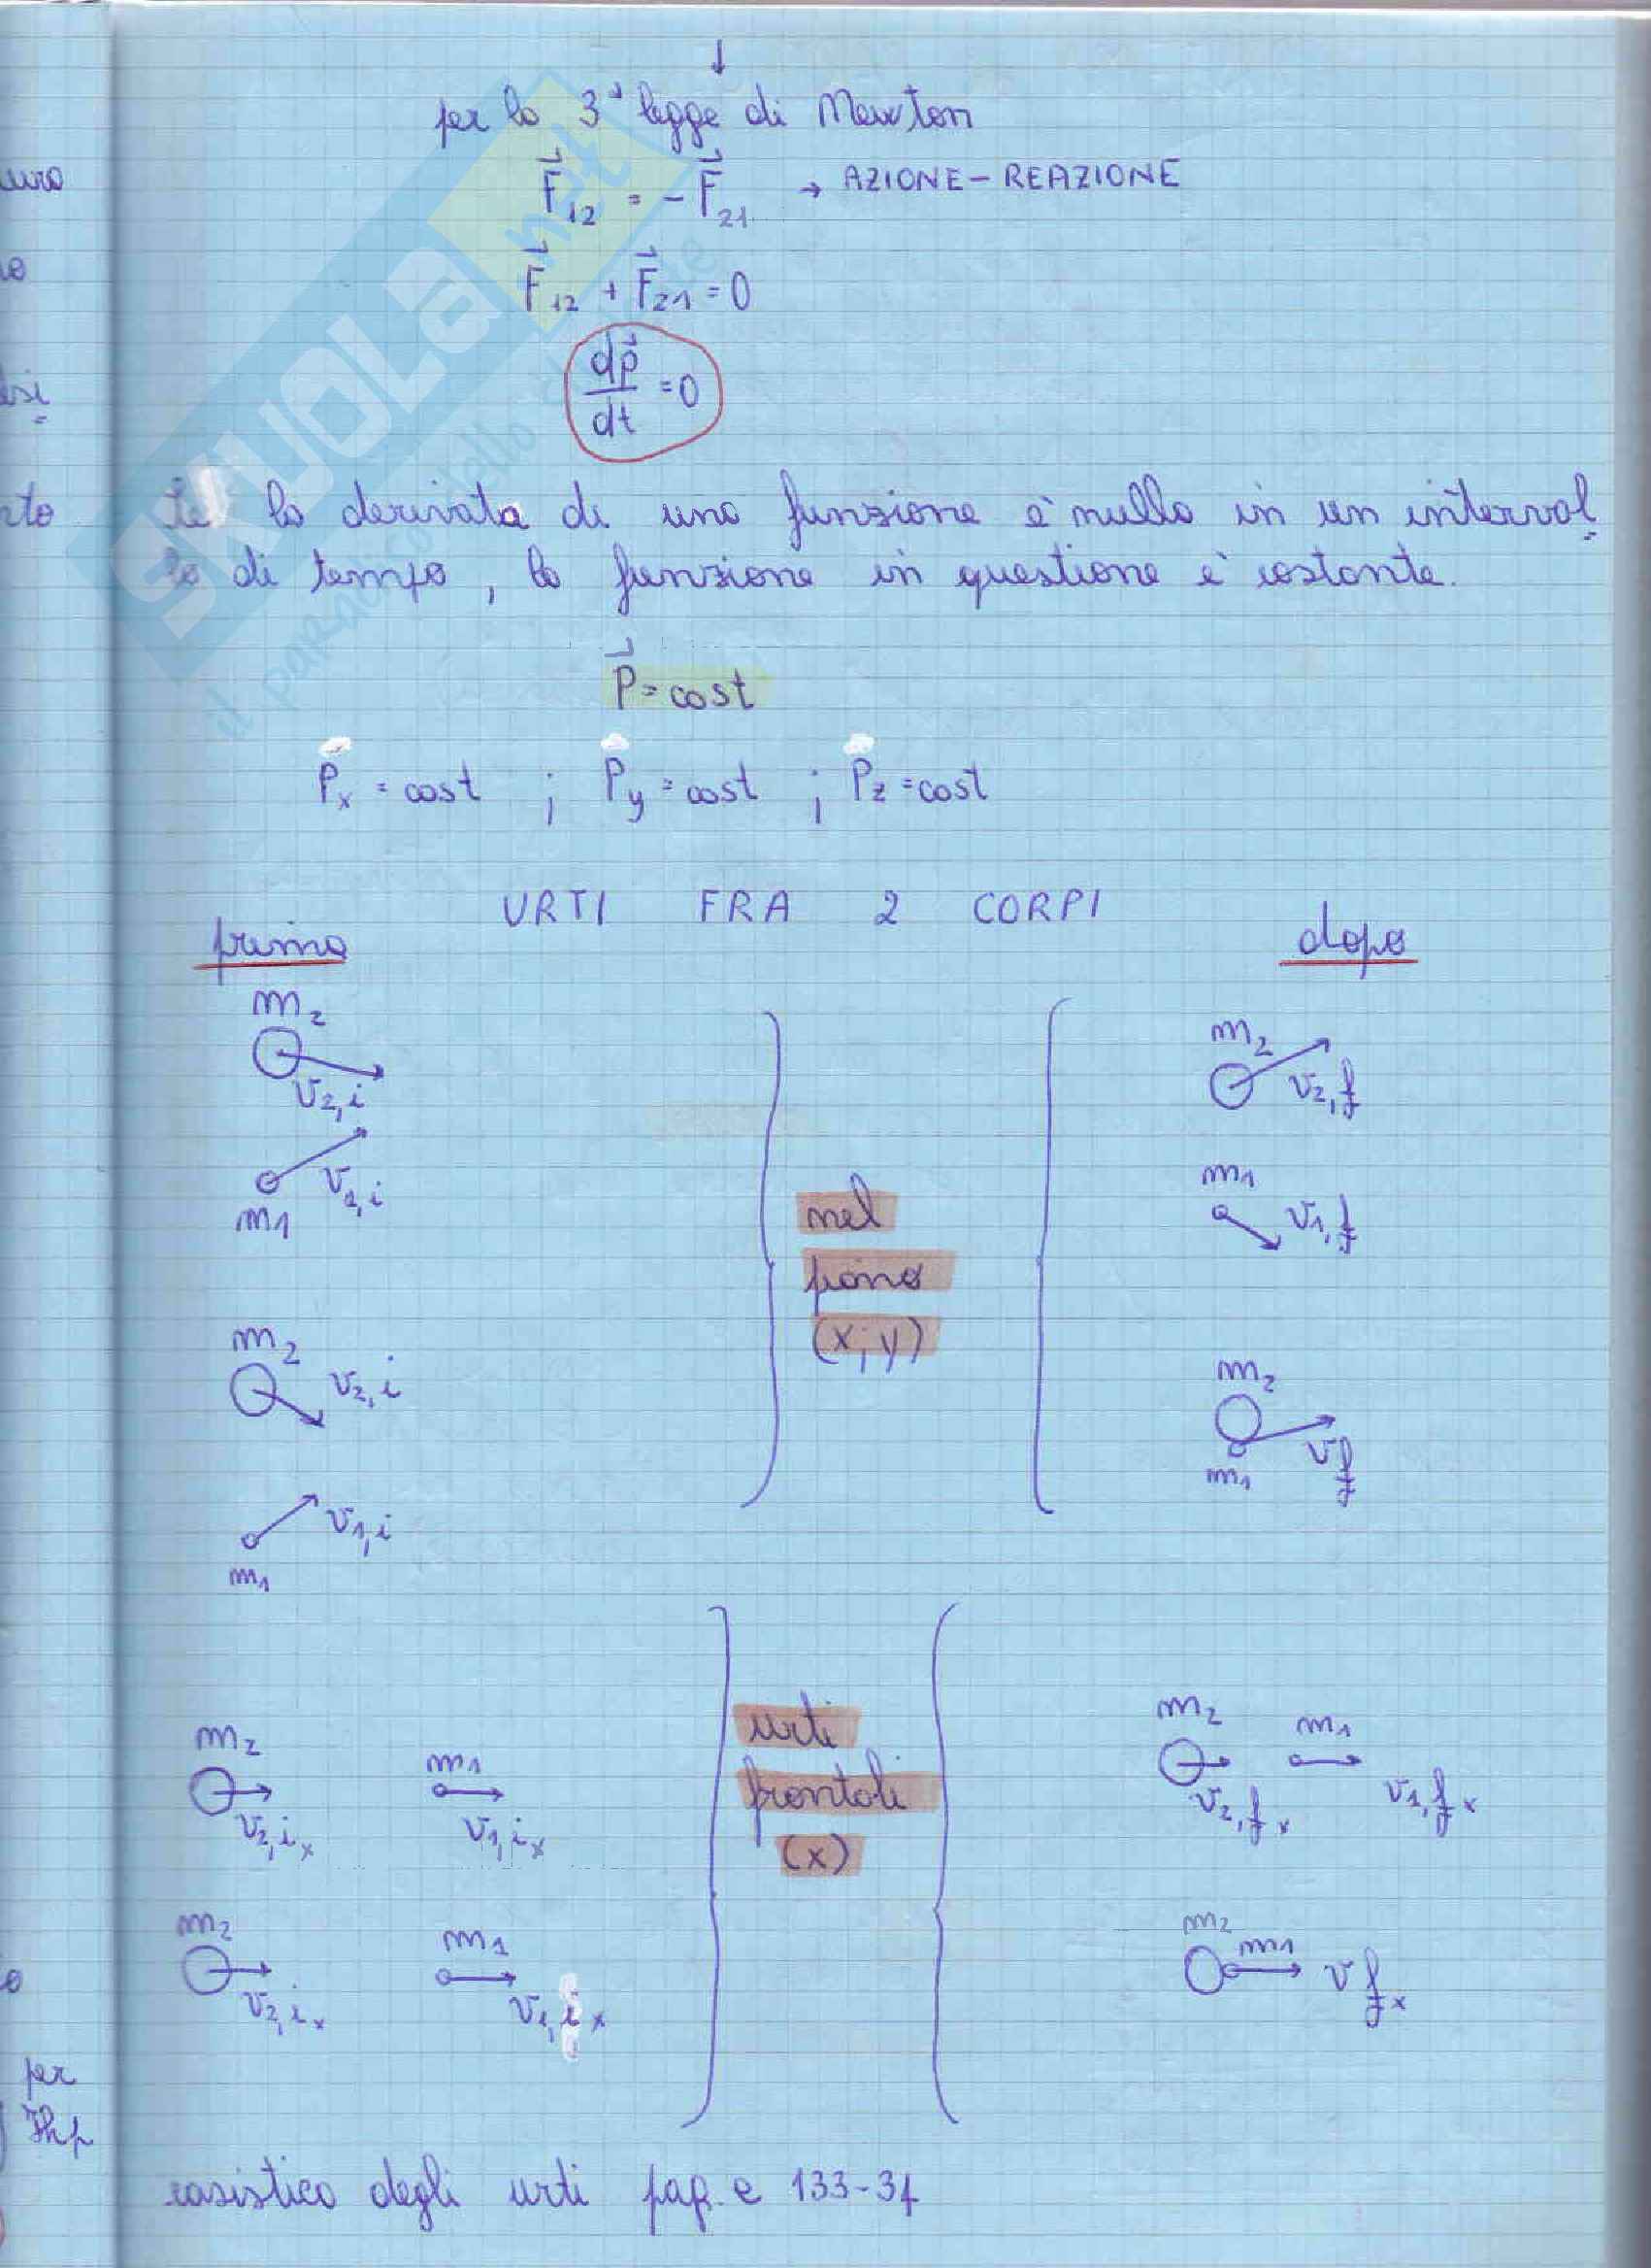 per la 3ª legge di Newton
F⃗12 = -F⃗21 → AZIONE-REAZIONE
F⃗12 + F⃗21 = 0
dp⃗/dt = 0
la derivata di una funzione è nulla in un interval
lo di tempo, la funzione in questione è costante.
P⃗ = cost
Px = cost ; Py = cost ; Pz = cost
URTI FRA 2 CORPI
prima
dopo
m2
v2,i
v1,i
m1
m2
v2,i
v1,i
m1
nel
piano
(x,y)
m2
v2,f
m1
v1,f
m2
m1
vf
m2
v2,ix
m1
v1,ix
m2
v2,ix
m1
v1,ix
urti
frontali
(x)
m2
v2,fx
m1
v1,fx
m2
m1
vfx
casistica degli urti pag. e 133-34
nto
per
SKUOLA.net